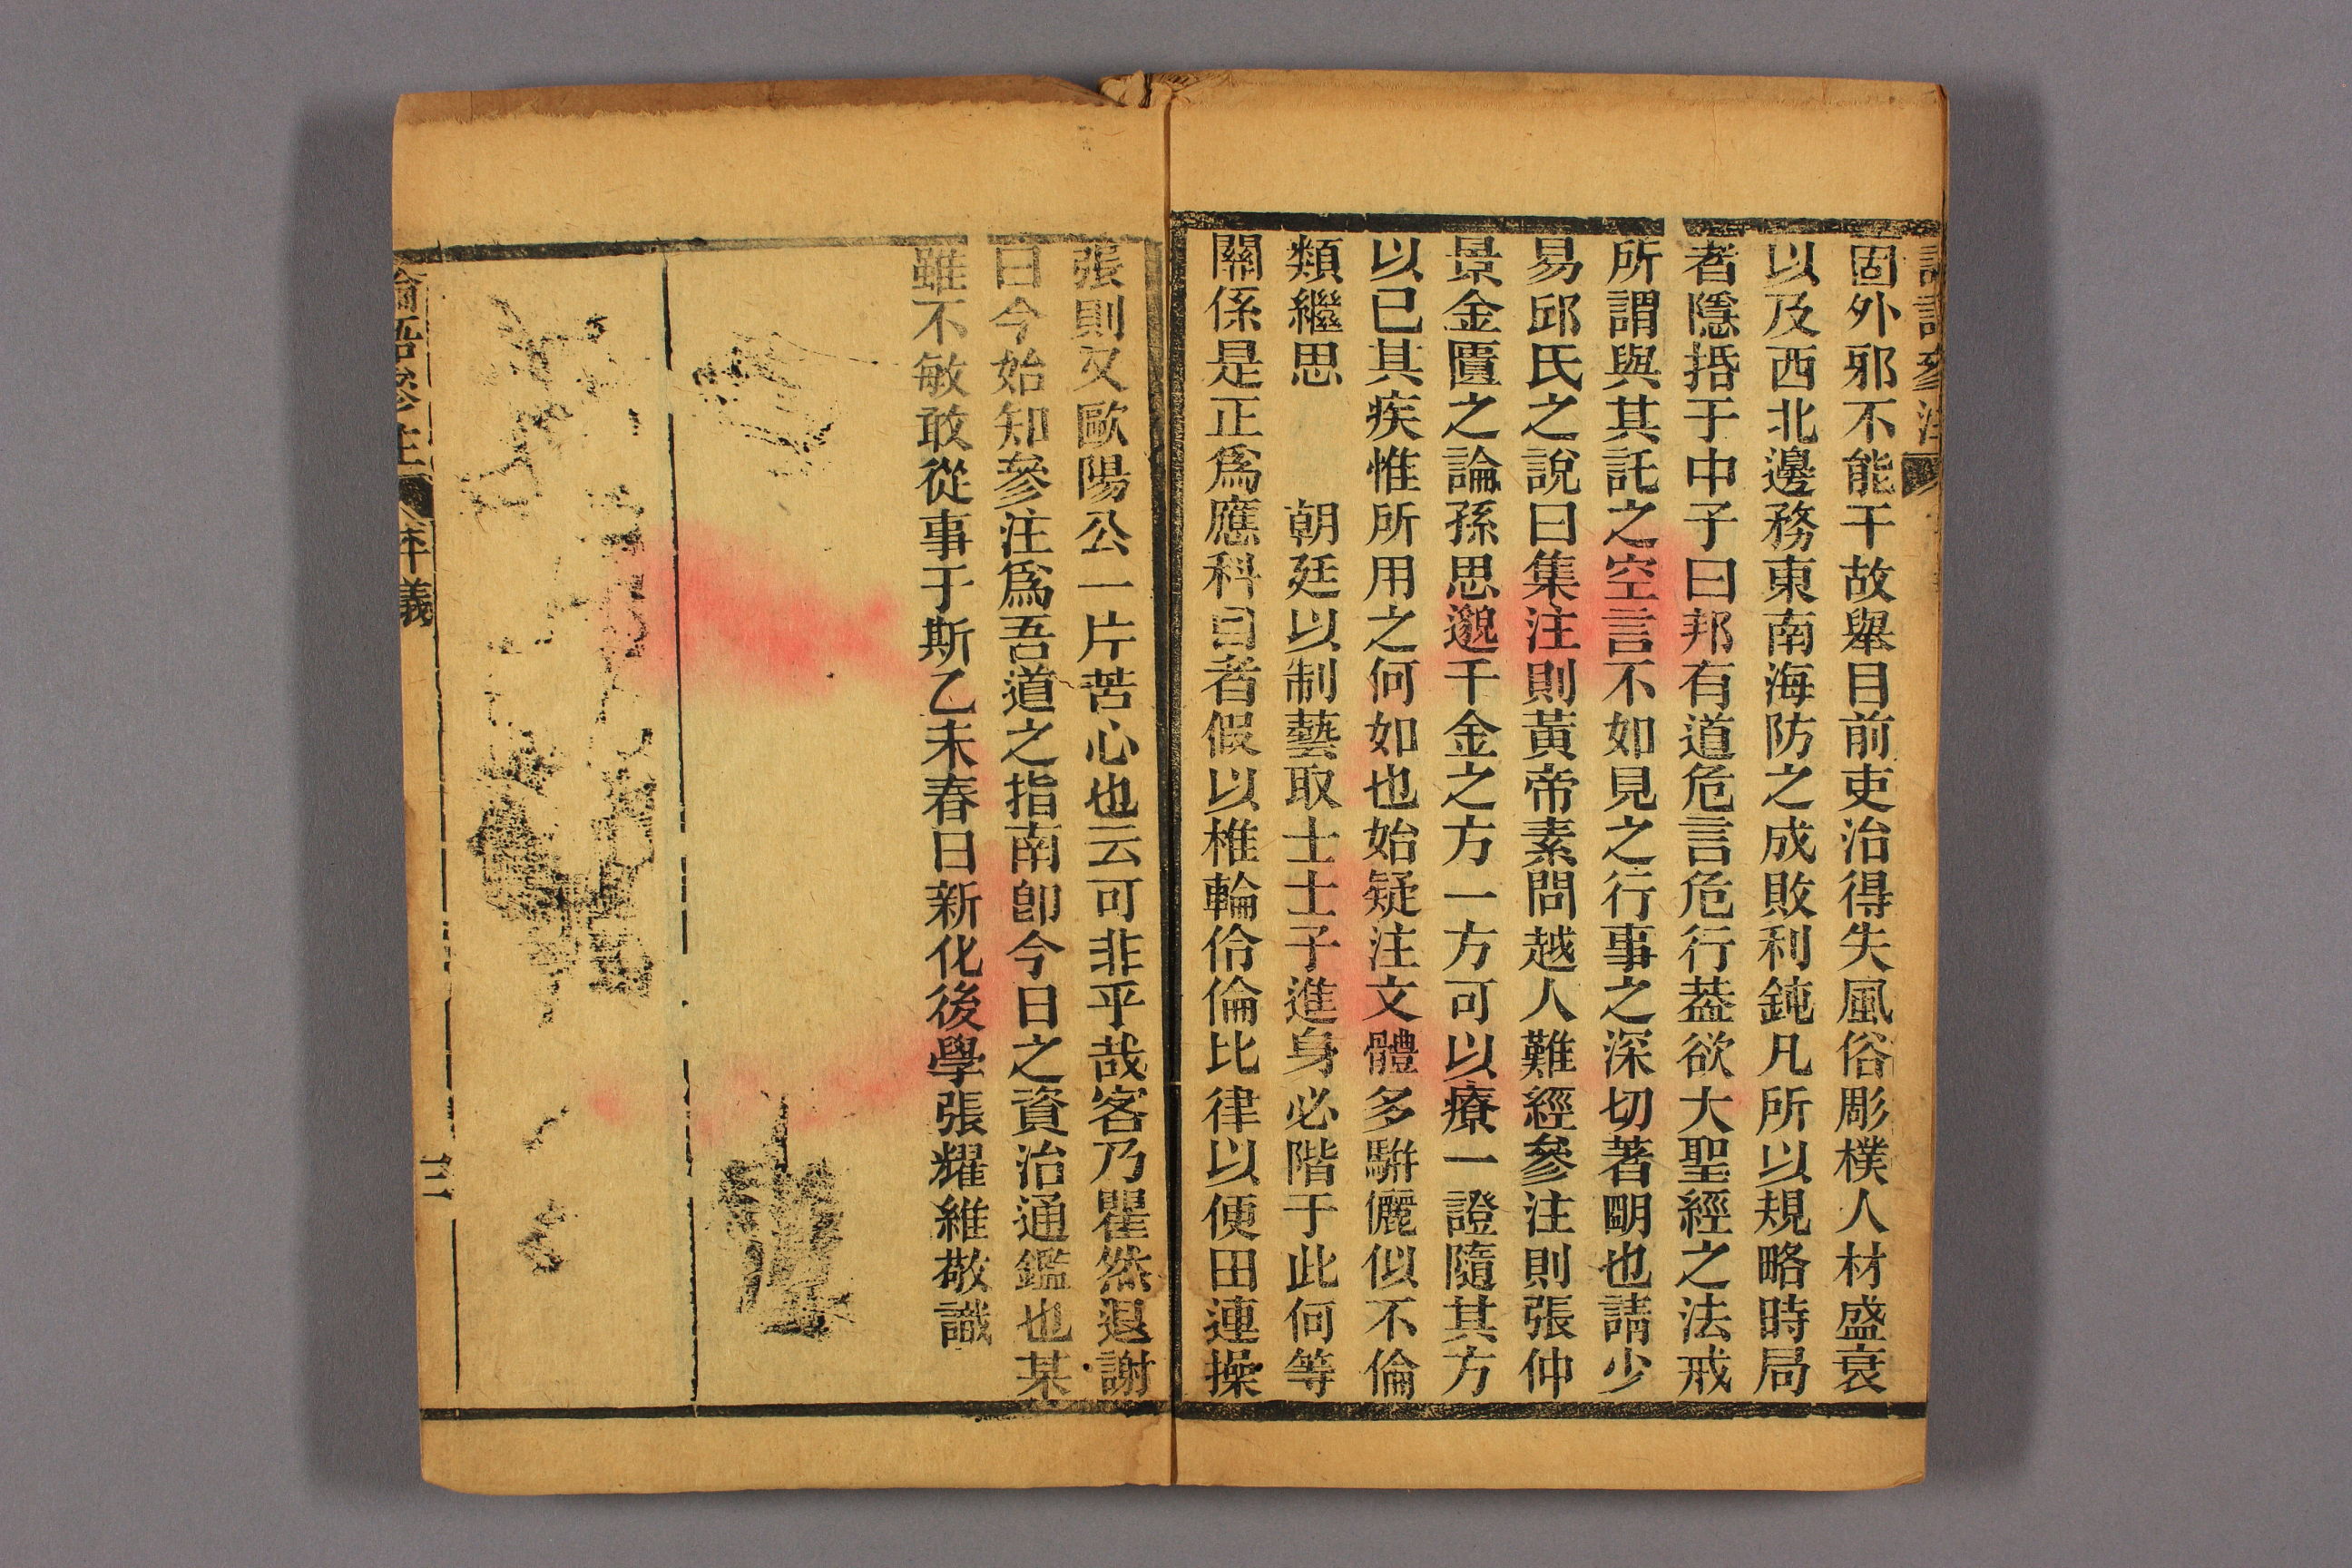 固外邪不能干故舉目前吏治得失風俗彫樸人材盛衰
以及西北邊務東南海防之成敗利鈍凡所以規略時局
者隱括于中子曰邦有道危言危行蓋欲大聖經之法戒
所謂與其託之空言不如見之行事之深切著明也請少
易邱氏之說曰集注則黃帝素問越人難經參注則張仲
景金匱之論孫思邈千金之方一方可以療一證隨其方
以已其疾惟所用之何如也始疑注文體多駢儷似不倫
類繼思 朝廷以制藝取士士子進身必階于此何等
關係是正爲應科目者假以椎輪伶倫比律以便田連操
張則又歐陽公一片苦心也云可非乎哉客乃瞿然退謝
曰今始知參注爲吾道之指南卽今日之資治通鑑也某
雖不敏敢從事于斯乙未春日新化後學張耀維敬識
論語參注 本義 三